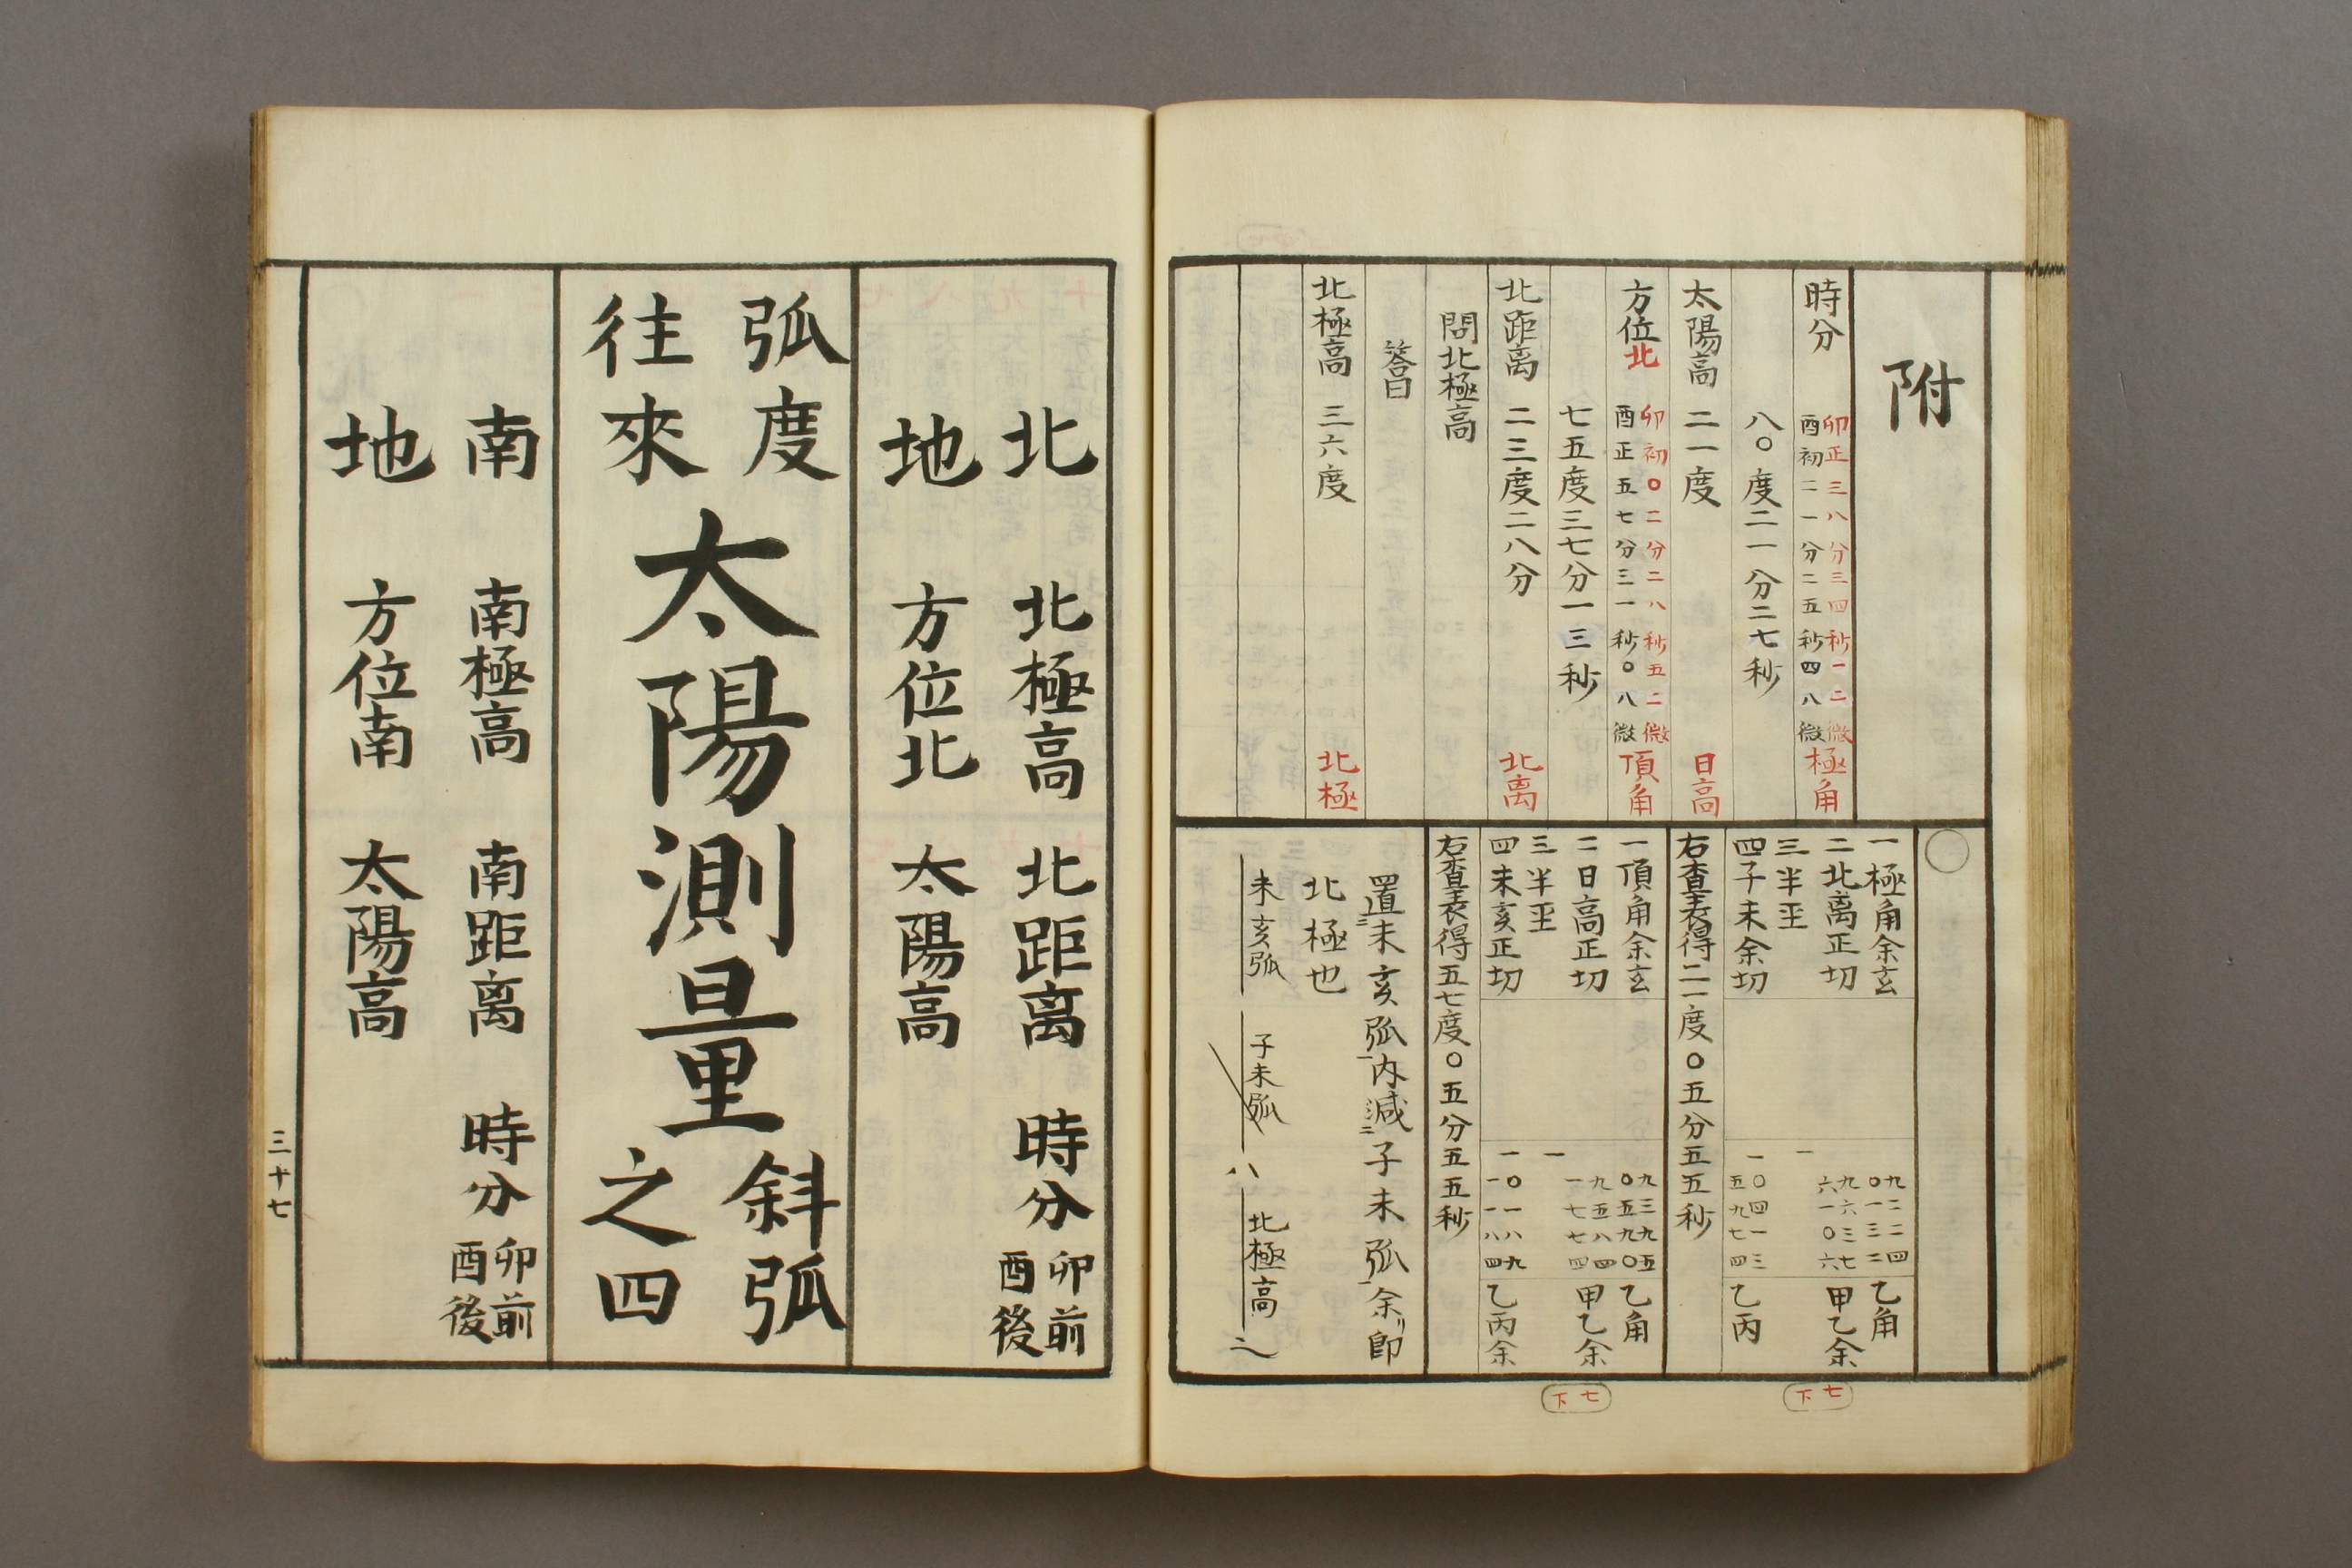 附
時分 卯正三八分三四秒一二微 極角
酉初二一分二五秒四八微
八〇度二一分二七秒
太陽高 二一度 日高
方位北 卯初〇二分二八秒五二微 頂角
酉正五七分三一秒〇八微
七五度三七分一三秒
北距离 二三度二八分 北离
問北極高
答曰
北極高 三六度 北極
一極角余玄 九二二四〇一三二 乙角
二北离正切 九六三七六一〇六 甲乙余
三半至 一
四子未余切 一〇四一三五九七四 乙丙
右查表得二一度〇五分五五秒
一頂角余玄 九三九五〇五九〇 乙角
二日高正切 九五八四一七七四 甲乙余
三半至 一
四未亥正切 一〇一八九一一八四 乙丙余
右查表得五七度〇五分五五秒
置未亥弧内減子未弧余即
北極也
未亥弧 子未弧 八 北極高
七下
七下
北地 北極高 北距离 時分 卯前酉後
方位北 太陽高
弧度往來 太陽測量 斜弧之四
南地 南極高 南距离 時分 卯前酉後
方位南 太陽高
三十七